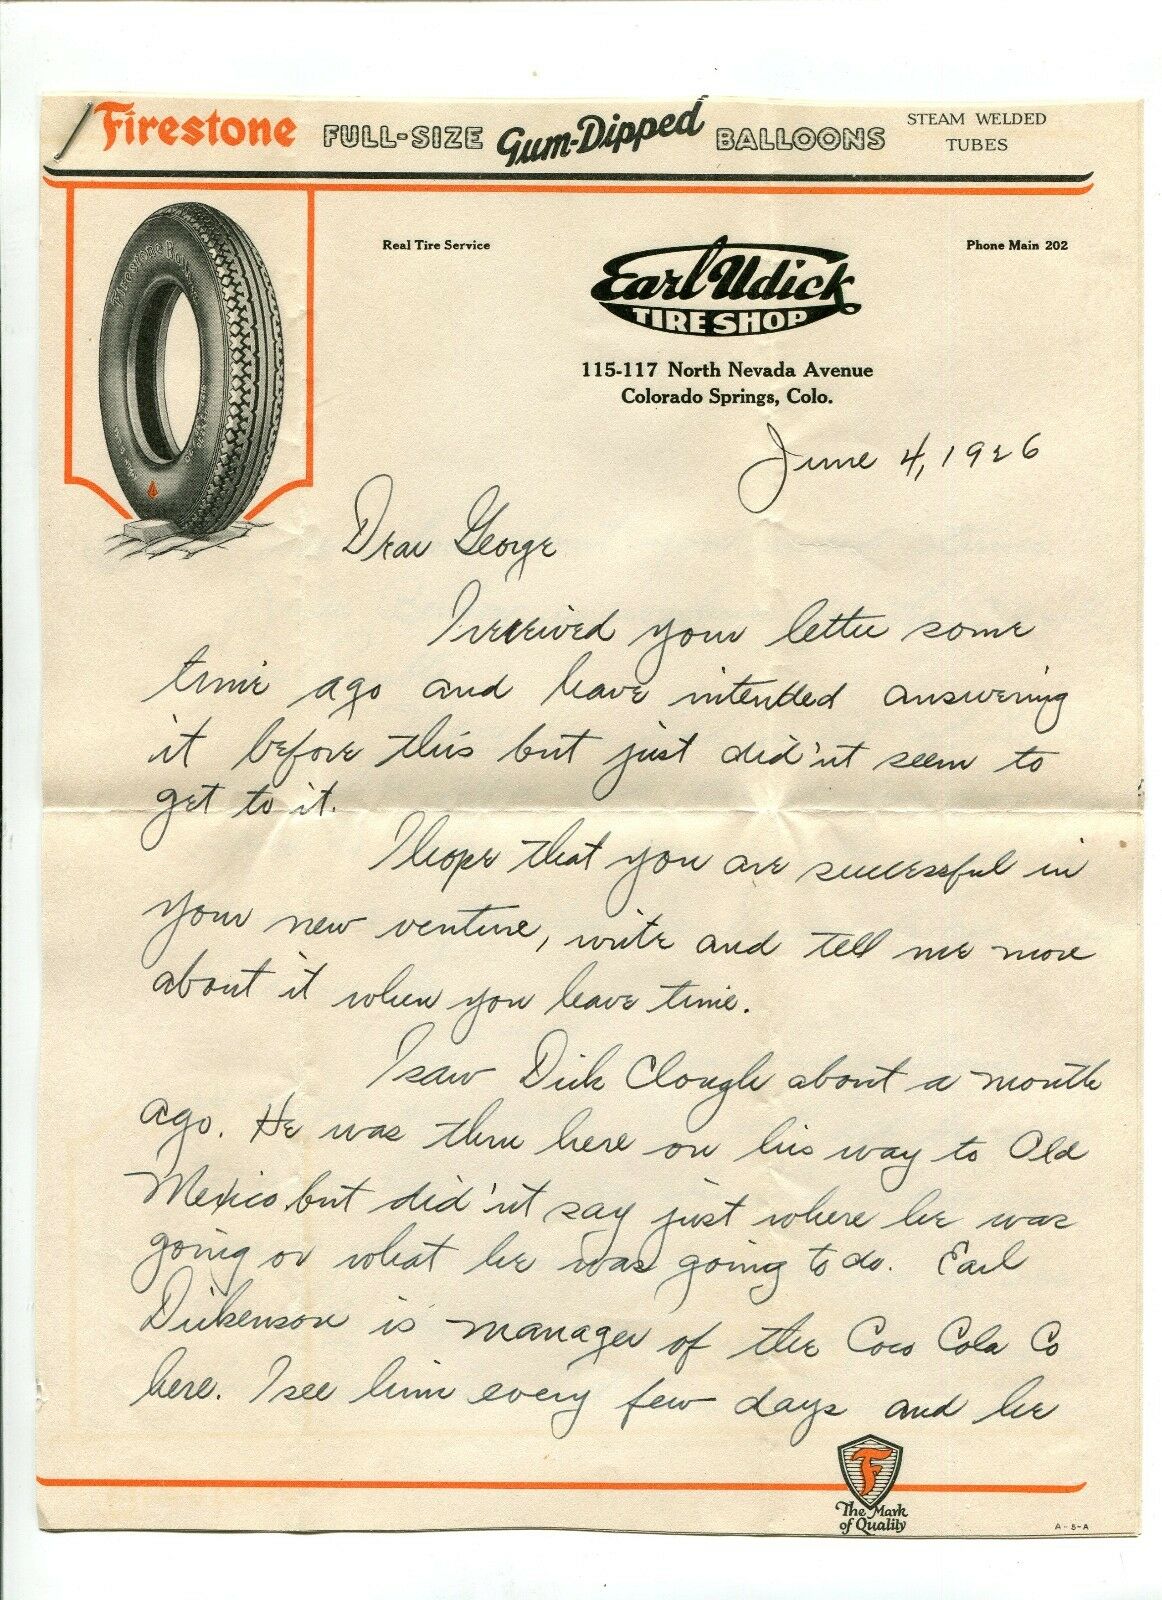 Firestone FULL-SIZE Gum-Dipped BALLOONS STEAM WELDED
TUBES
Real Tire Service
Phone Main 202
Earl Udick
TIRE SHOP
115-117 North Nevada Avenue
Colorado Springs, Colo.
June 4, 1926
Dear George
I received your letter some
time ago and have intended answering
it before this but just did'nt seem to
get to it.
I hope that you are successful in
your new venture, write and tell me more
about it when you have time.
I saw Dick Clough about a month
ago. He was thru here on his way to Old
Mexico but did'nt say just where he was
going or what he was going to do. Earl
Dickenson is manager of the Coco Cola Co
here. I see him every few days and he
F
The Mark
of Quality
A-5-A